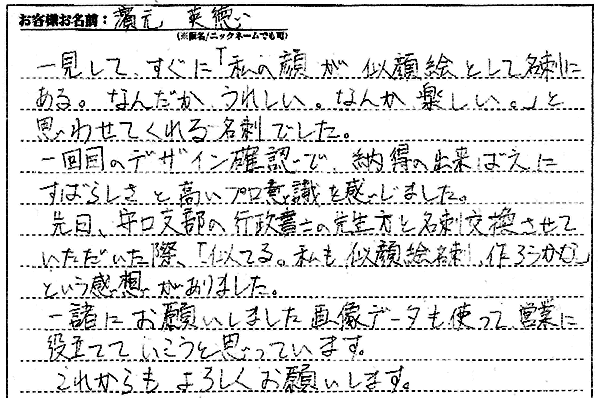 お客様お名前：濱元 英徳
(※匿名/ニックネームでも可)
一見して、すぐに「私の顔が似顔絵として名刺に
ある。なんだか、うれしい。なんか楽しい。」と
思わせてくれる名刺でした。
一回目のデザイン確認で、納得の出来ばえに
すばらしさと高いプロ意識を感じました。
先日、守口支部の行政書士の先生方と名刺交換させて
いただいた際、「似てる。私も似顔絵名刺、作ろうかな」
という感想がありました。
一諸にお願いしました画像データも使って、営業に
役立てていこうと思っています。
これからもよろしくお願いします。